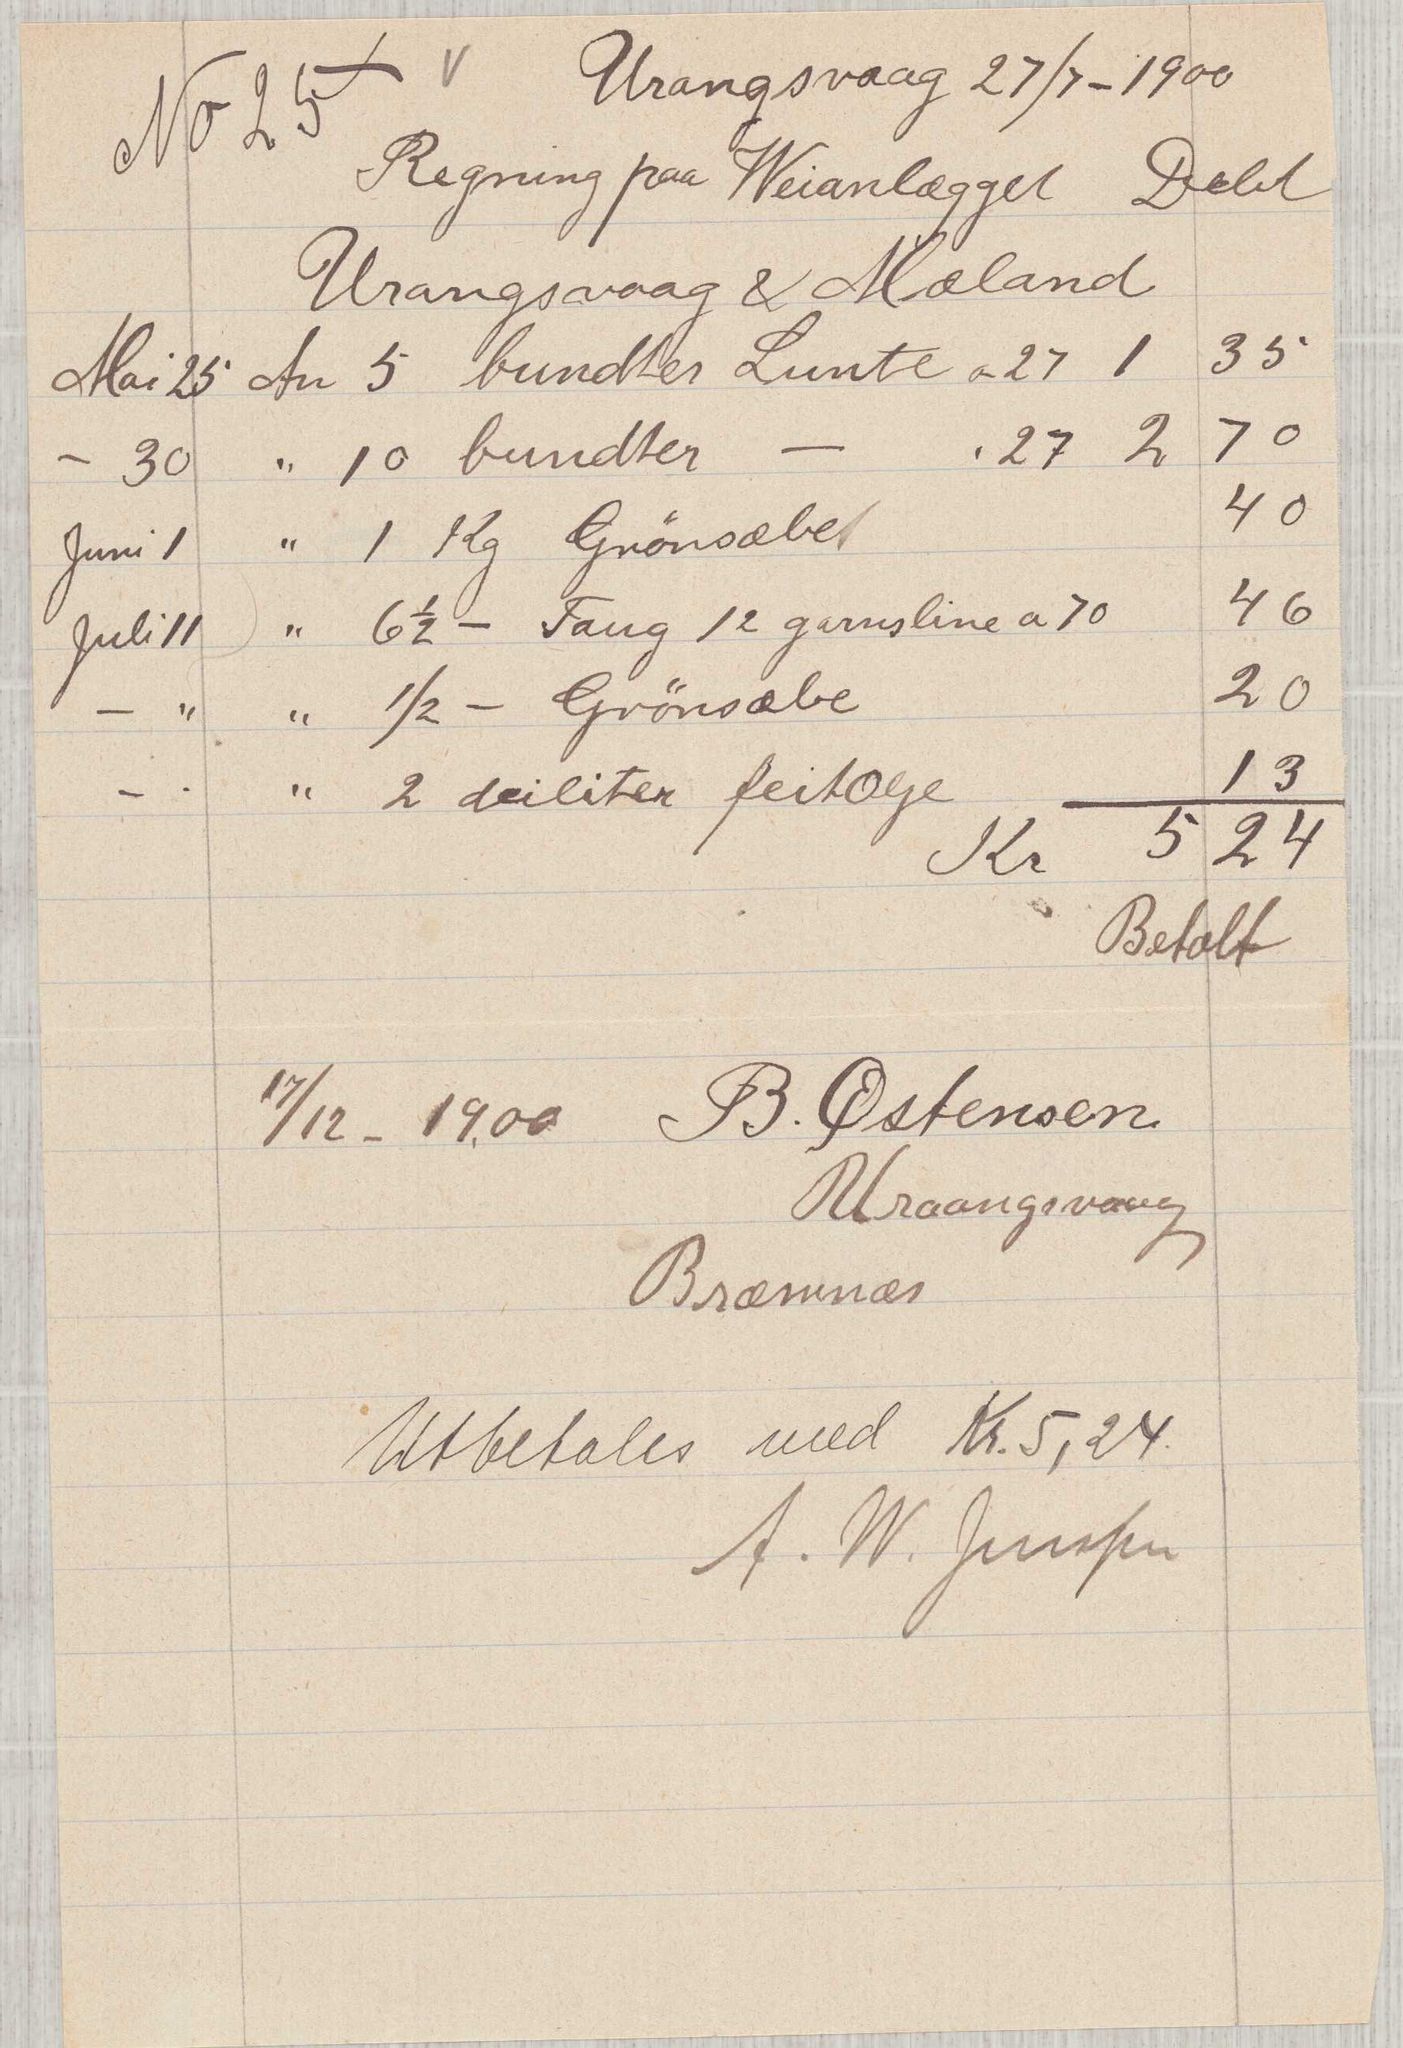 No 25 v Urangsvaag 27/7 - 1900
Regning paa Weianlægget Debet
Urangsvaag & Mæland
Mai 25 An 5 bundter Lunte a 27 1 35
- 30 " 10 bundter — " 27 2 70
Juni 1 " 1 Kg Grönsæbe 40
Juli 11 " 6 1/2 - Faug 12 garnsline a 70 46
- " " 1/2 - Grönsæbe 20
- " " 2 deiliter feitolje 13
Kr 5 24
Betalt
17/12 - 1900 B. Østensen
Uraangsvaag
Bræmnæs
Utbetales med Kr. 5,24.
A. W. Jensen